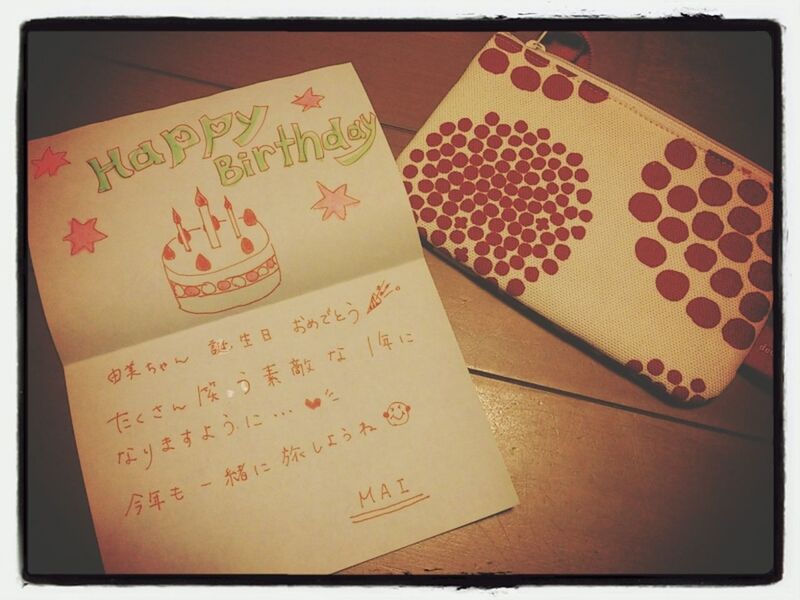 Happy
Birthday
由美ちゃん 誕生日 おめでとう
たくさん 笑う 素敵 な 1年に
なりますように…
今年も 一緒に 旅しようね
MAI